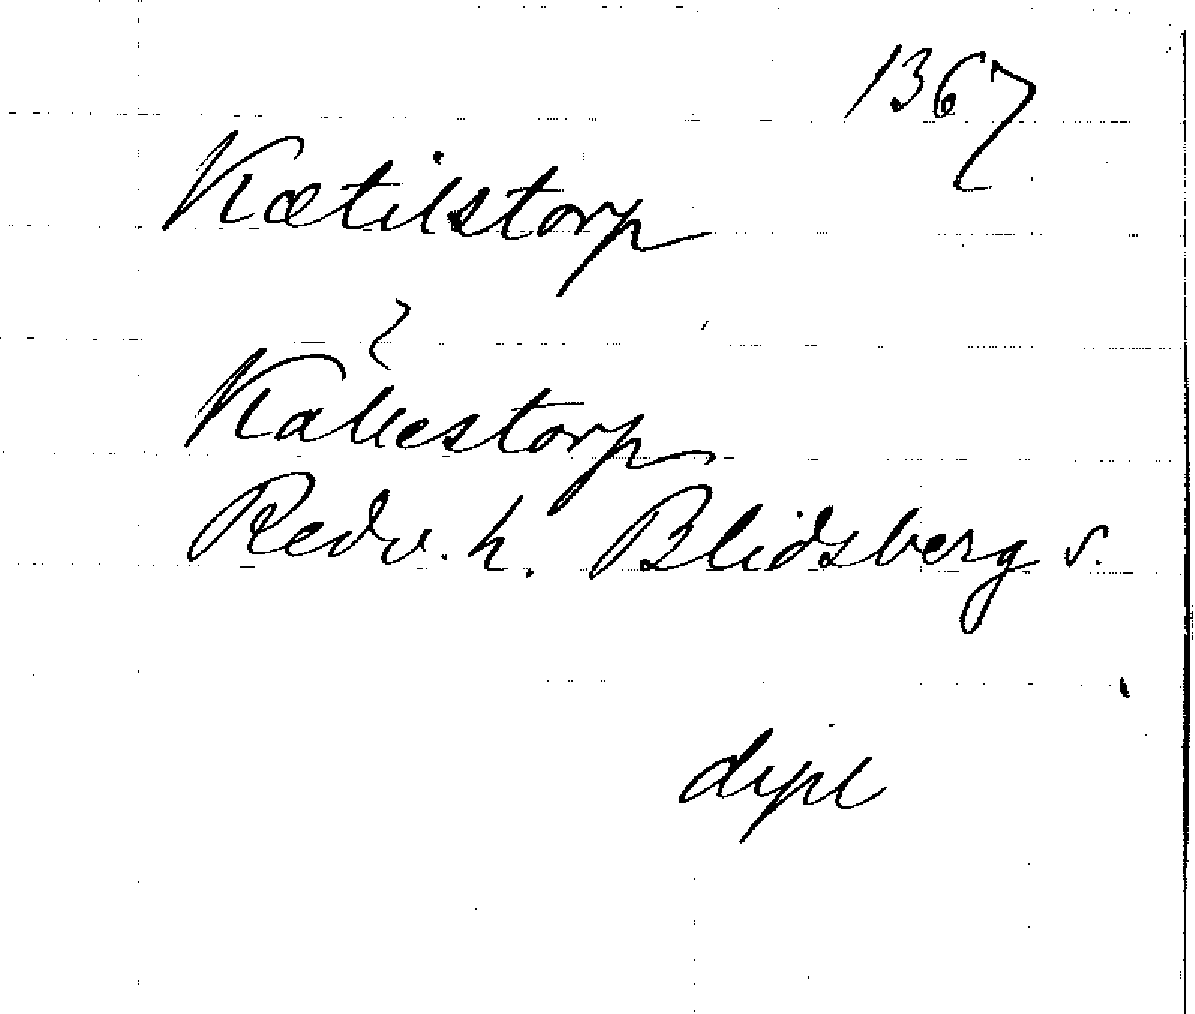 1367
Kætilstorp
Kallestorp
Redv. h. Blidsberg s.
dipl